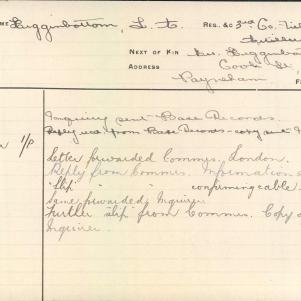 ME Higginbottom, L. t. REG. &C 3rd Co. Fie
Artiller
NEXT OF KIN Mr. Higginbo
ADDRESS Cook St,
Payneham F
1/P Inquiry sent Base Records.
Reply recd from Base Records - copy sent
Letter forwarded Commrs., London.
Reply from Commrs. Information
"Slip" " " confirming cable.
Same forwarded, Inquirer
Further "slip" from Commrs. Copy
Inquirer.